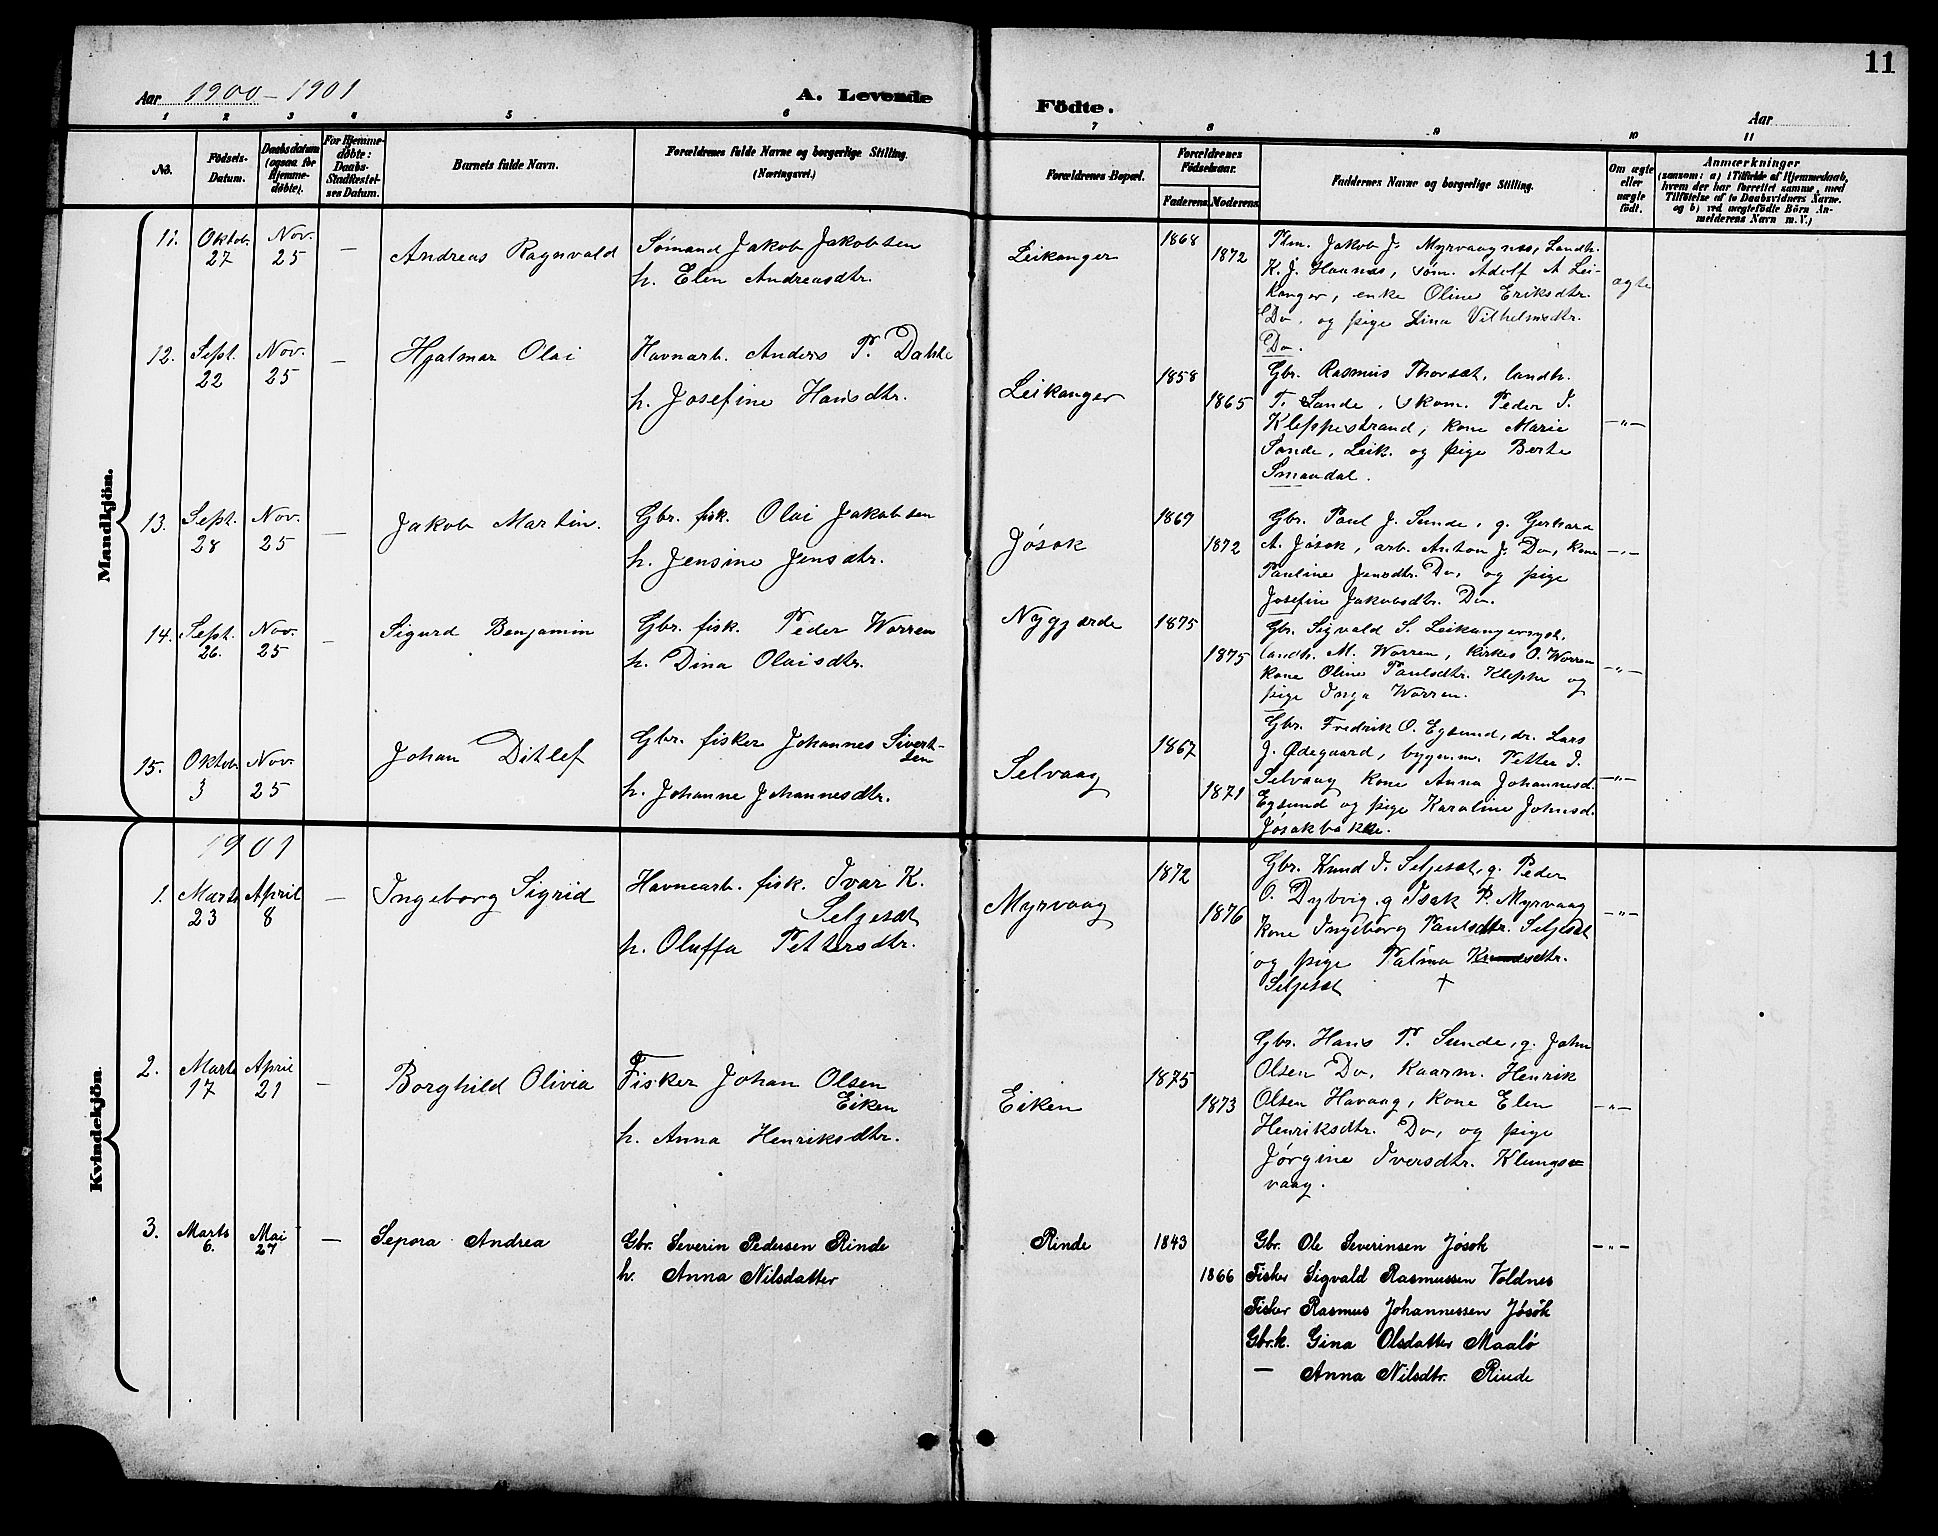 11
Aar 1900-1901
A. Levende Födte.
Aar
1 2 3 4 5 6 7 8 9 10 11
No.
Födsels-Datum.
Daabsdatum (ogsaa for Hjemme-døbte).
For Hjemme-døbte: Daabs-Stadfæstel-ses Datum.
Barnets fulde Navn.
Forældrenes fulde Navne og borgerlige Stilling. (Næringsvei.)
Forældrenes Bopæl.
Forældrenes Födselsaar.
Faderens. Moderens.
Faddernes Navne og borgerlige Stilling.
Om ægte eller uægte født.
Anmærkninger
(saasom: a) i Tilfælde af Hjemmedaab, hvem der har forrettet samme, med Tilföielse af to Daabsvidners Navne. og b) ved uægtefödte Börn An-melderens Navn m. V.)
Mandkjön.
11. Oktob. 27 Nov. 25 — Andreas Ragnvald
Sømand Jakob Jakobsen
h. Elen Andreasdtr.
Leikanger 1868 1872
Tdm. Jakob J. Myrvaagnes, Landh.
K. J. Haanæs, søm. Adolf A Lei-
kanger, enke Oline Eriksdtr.
Do, og pige Lina Vilhelmsdtr.
Do.
ægte
12. Sept. 22 Nov. 25 — Hjalmar Olai
Havnarb. Anders P. Dahle
h. Josefine Hansdtr.
Leikanger 1858 1865
Gbr. Rasmus Thorsæt, landh.
T. Sande, skom. Peder I.
Kleppestrand, kone Marie
Sande, Leik. og pige Berte
Smaadal.
—„—
13. Sept. 28 Nov. 25 — Jakob Martin.
Gbr. fisk. Olai Jakobsen
h. Jensine Jensdtr.
Jøsok 1869 1872
Gbr. Paul J. Sunde, g. Gerhard
A. Jøsok, arb. Anton J. Do, kone
Pauline Jensdtr. Do, og pige
Josefin Jakobsdtr. Do.
—„—
14. Sept. 26. Nov. 25 — Sigurd Benjamin
Gbr. fisk. Peder Worren
h. Dina Olaisdtr.
Nygjærde 1875 1875
Gbr. Sigvald S. Leikangersyet.
landh. M. Worren, kirkes O. Worren
kone Oline Paulsdtr. Kleppe og
pige Inga Worren.
—„—
15. Oktob 3 Nov. 25 Johan Ditlef
Gbr. fisker Johannes Sivert-
sen
h. Johanne Johannesdtr.
Selvaag 1867 1871
Gbr. Fredrik O. Egsund, dr. Lars
J. Ødegaard, bygmm. Petter I.
Selvaag kone Anna Johannesd.
Egsund og pige Karoline Johnsd.
Jøsakbakke.
—„—
Kvindekjön.
1901
1. Marts 23 April 8 — Ingeborg Sigrid
Havnearb. fisk. Ivar K.
Seljesæt
h. Oluffa Pettersdtr.
Myrvaag 1872 1876
Gbr. Knud I. Seljesæt, g. Peder
O. Dybvig, g Isak P. Myrvaag
kone Ingeborg Paulsdtr. Seljesæt
og pige Palma Knudsdtr.
Seljesæt +
—„—
2. Marts 17 April 21 — Borghild Olivia
Fisker Johan Olsen
Eiken
h. Anna Henriksdtr.
Eiken 1875 1873
Gbr. Hans P. Sunde, g. John
Olsen Do, Kaarm. Henrik
Olsen Havaag, kone Elen
Henriksdtr. Do, og pige
Jørgine Iversdtr. Klungs-
vaag.
—„—
3. Marts 6. Mai 27 — Sepora Andrea
Gbr. Severin Pedersen Rinde
h. Anna Nilsdatter
Rinde 1843 1866
Gbr. Ole Severinsen Jøsok
Fisker Sigvald Rasmussen Voldnes
Fisker Rasmus Johannessen Jøsök
Gbr.k. Gina Olsdatter Maalö
— Anna Nilsdtr. Rinde
—„—